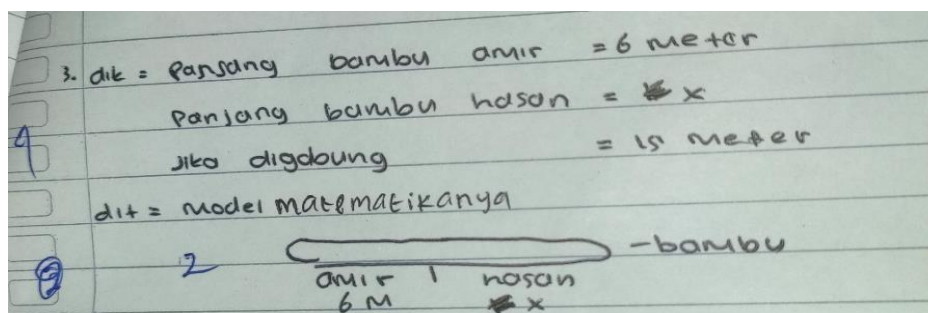 3. dik = Pansang bambu amir = 6 meter
Panjang bambu hasan = x
4
Jika digdbung = 15 meter
dit = Model matematikanya
2
2 -bambu
amir | hasan
6 M x